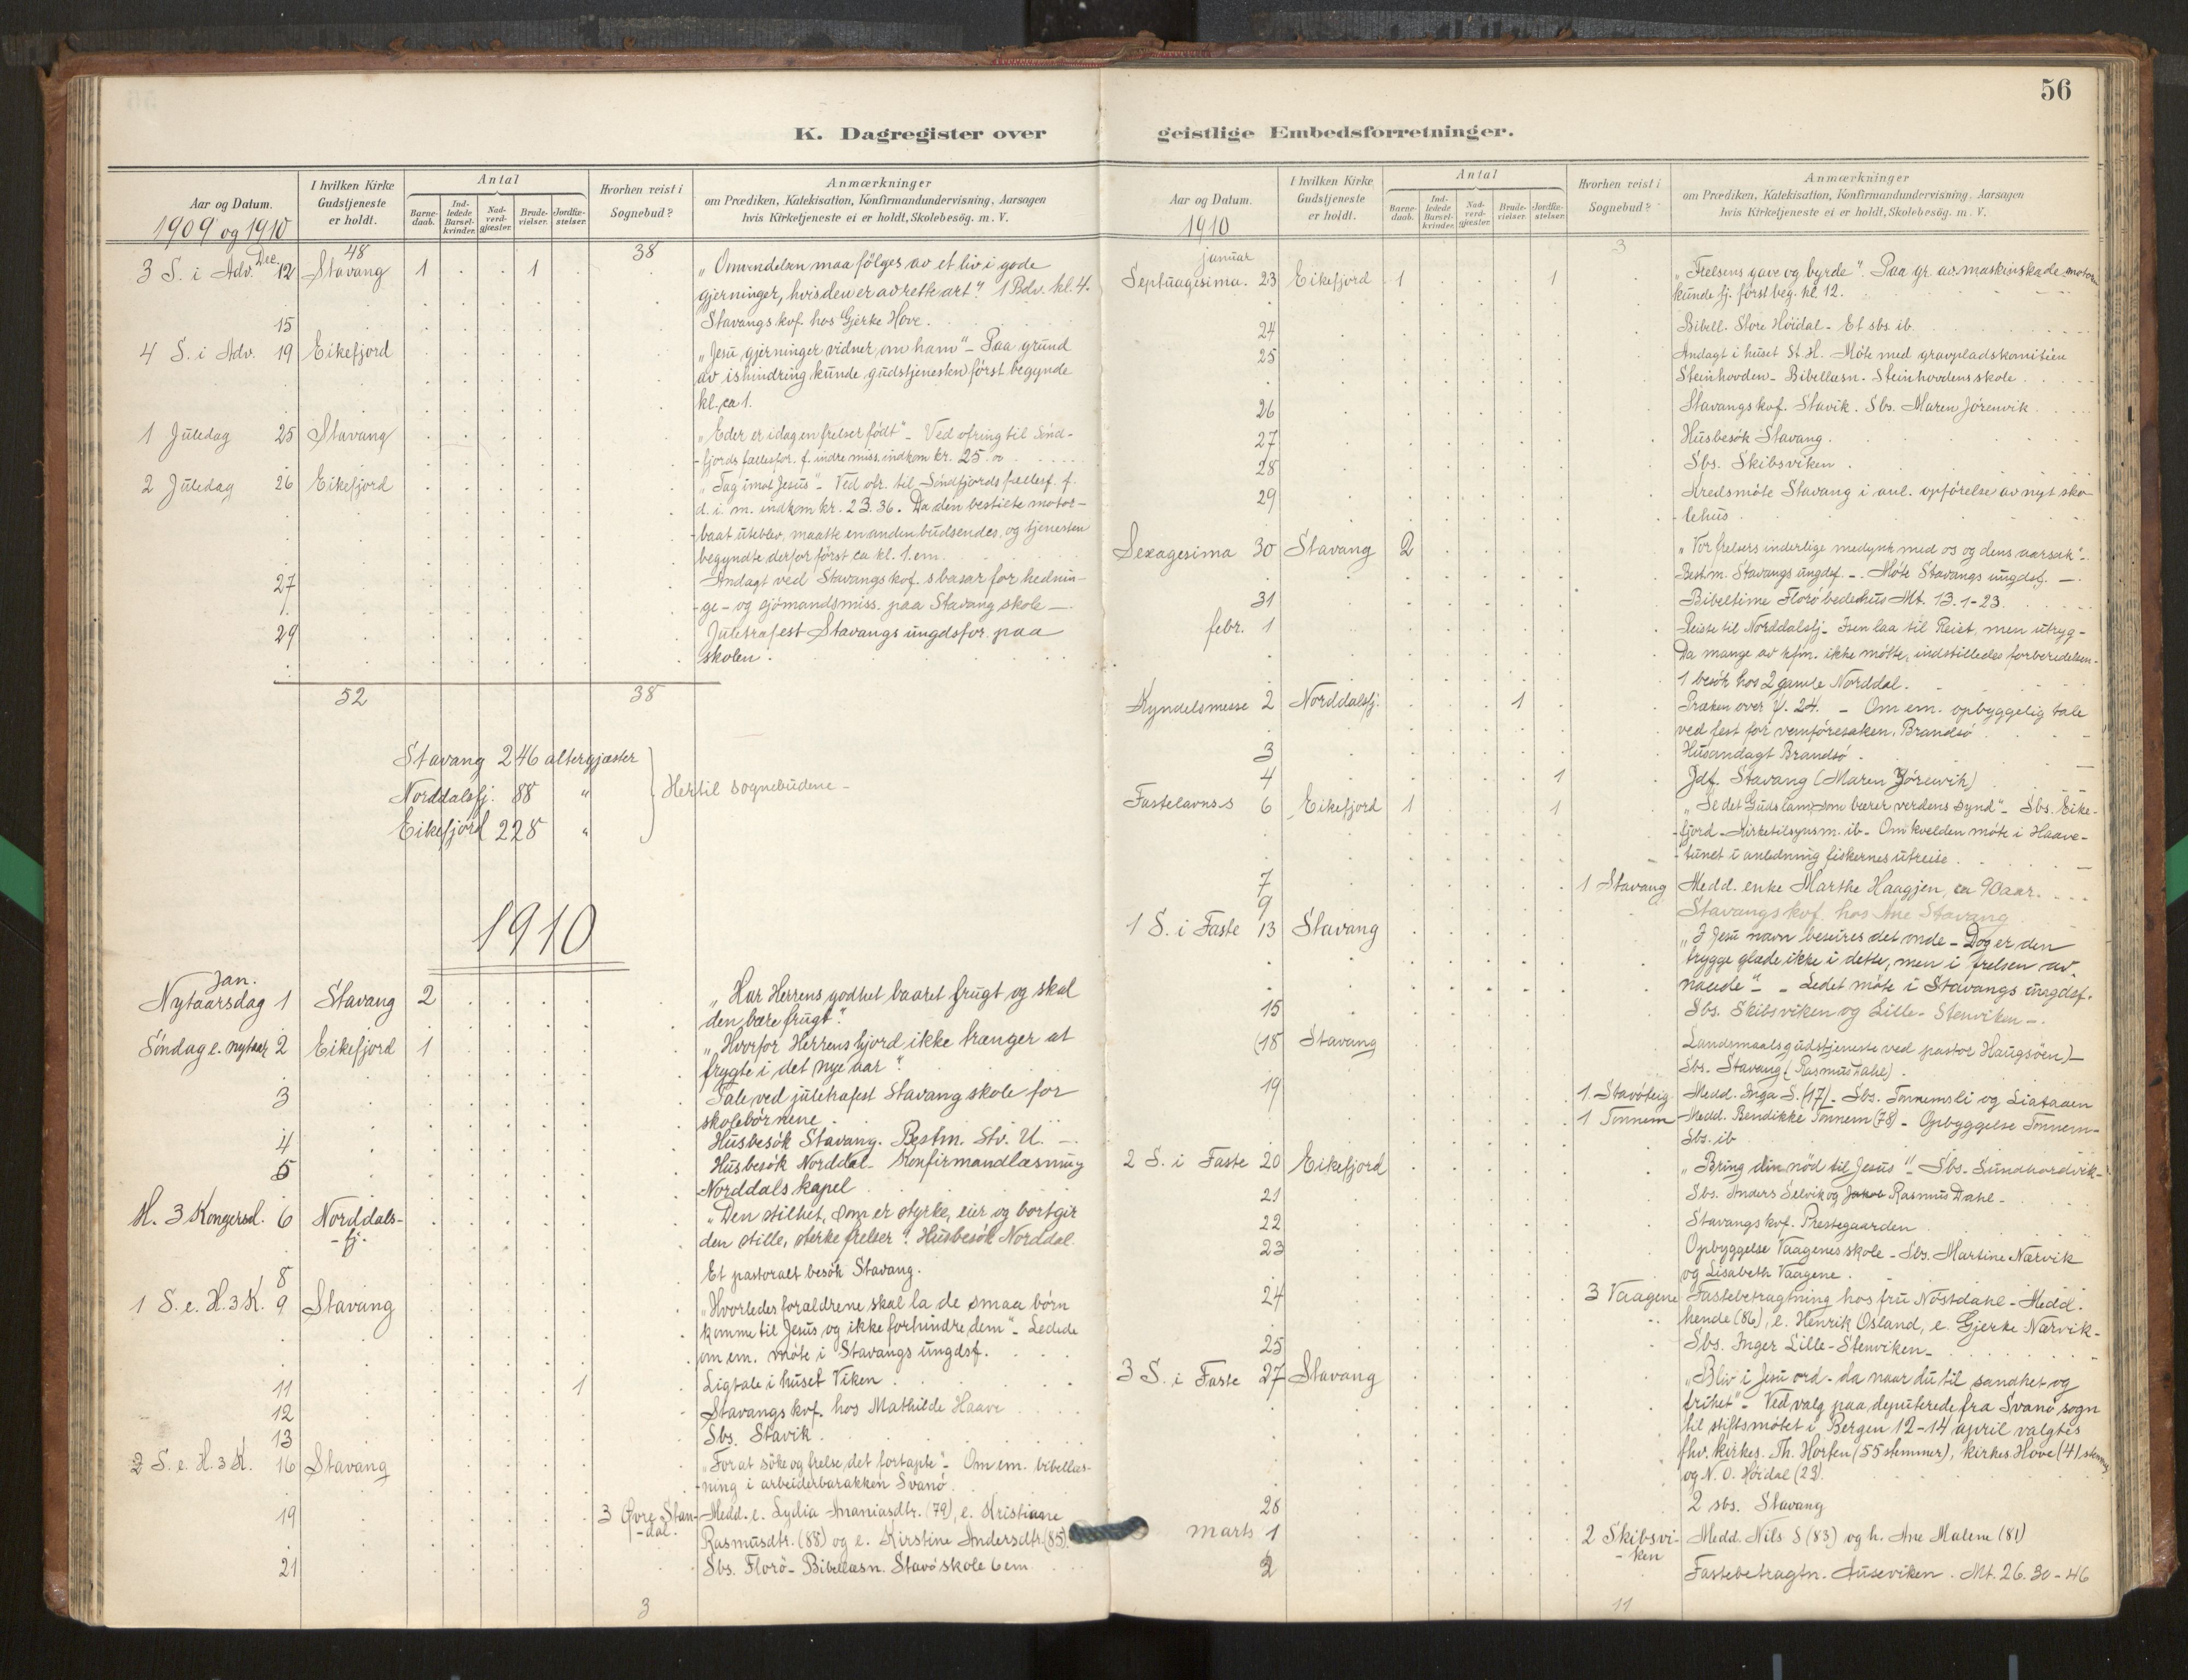 56
K. Dagregister over geistlige Embedsforretninger.
Aar og Datum.
1909 og 1910
I hvilken Kirke Gudstjeneste er holdt.
Antal
Barnedaab.
Indledede Barselkvinder.
Nadverdgjæster.
Brudevielser.
Jordfæstelser.
Hvorhen reist i Sognebud?
Anmærkninger
om Prædiken, Katekisation, Konfirmandundervisning, Aarsagen
hvis Kirketjeneste ei er holdt, Skolebesög. m. V.
48 38
3 S. i Adv. Dec. 12 Stavang 1 1 „Omvendelsen maa følges av et liv i gode
gjerninger, hvis den er av rette art". 1 Bdv. kl. 4.
15 Stavangs kvf. hos Gjerke Hove.
4 S. i Adv. 19 Eikefjord „Jesu gjerninger vidner om ham" - Paa grund
av ishindring kunde gudstjenesten först begynde
kl. ca 1.
1 Juledag 25 Stavang „Eder er idag en frelser født" - Ved ofring til Sönd-
-fjords fællesfor. f. indre miss. indkom kr. 25.00
2 Juledag 26 Eikefjord „Tag imot Jesus" - Ved ofr. til Söndfjords fællesf. f.
d. i. m. indkom kr. 23.36. Da den bestilte motor-
-baat uteblev, maatte en anden budsendes, og tjenesten
begyndte derfor först ca kl. 1. em.
27 Andagt ved Stavangs kvf.s basar for hednin-
-ge- og sjömandsmiss. paa Stavang skole -.
29 Juletræfest Stavangs ungdsfor. paa
skolen.
52 38
Stavang 246 altergjæster
Norddalsfj. 88 "
Eikefjord 228 "
Hertil sognebudene -
1910
Jan.
Nytaarsdag 1 Stavang 2 „Har Herrens godhet baaret frugt og skal
den bære frugt".
Söndag e. nytaar 2 Eikefjord 1 „Hvorfor Herrens hjord ikke trænger at
frygte i det nye aar".
3 Tale ved juletræfest Stavang skole for
skolebörnene.
4 Husbesök Stavang. Bestm. Stv. U. -.
5 Husbesök Norddal - Konfirmandlæsning
Norddals kapel
H. 3 Kongersd. 6 Norddals-
-fj. „Den stilhet, som er styrke, eier og bortgir
den stille, sterke frelser". Husbesök Norddal.
8 Et pastoralt besök Stavang.
1 S. e. H. 3 K. 9 Stavang „Hvorledes forældrene skal la de smaa börn
komme til Jesus og ikke forhindre dem" - Ledede
om em. möte i Stavangs ungdsf.
11 1 Ligtale i huset Viken
12 Stavangs kvf. hos Mathilde Haave
13 Sbs. Stavik.
2 S. e. H. 3 K. 16 Stavang „For at söke og frelse det fortapte" - Om em. bibellæs-
-ning i arbeiderbarakken Svanö.
19 3 Øvre Stan-
-dal. Medd. e. Lydia Ananiasdtr. (79), e. Kristiane
Rasmusdtr. (88) og e. Kirstine Andersdtr. (85)
21 Sbs. Florö - Bibellæsn. Stavö skole 6 em.
3
Aar og Datum.
1910
I hvilken Kirke Gudstjeneste er holdt.
Antal
Barnedaab.
Indledede Barselkvinder.
Nadverdgjæster.
Brudevielser.
Jordfæstelser.
Hvorhen reist i Sognebud?
Anmærkninger
om Prædiken, Katekisation, Konfirmandundervisning, Aarsagen
hvis Kirketjeneste ei er holdt, Skolebesög. m. V.
3
januar
Septuagesima. 23 Eikefjord 1 1 „Frelsens gave og byrde". Paa gr. av maskinskade motor
kunde tj. först beg. kl. 12.
24 Bibell. Store Höidal - Et sbs. ib.
25 Andagt i huset St. H. Möte med gravpladskomitéen
Steinhovden - Bibellæsn. Steinhovdens skole
26 Stavangs kvf. Stavik. Sbs. Maren Jörenvik
27 Husbesök Stavang.
28 Sbs. Skibsviken.
29 Kredsmöte Stavang i anl. opförelse av nyt sko-
-lehus
Sexagesima 30 Stavang 2 „Vor frelsers inderlige medynk med os og dens aarsak" -
Bestm. Stavangs ungdsf. -. Möte Stavangs ungdsf. -.
31 Bibeltime Florö bedehus Mt. 13.1-23.
febr. 1 Reiste til Norddalsfj - Isen laa til Reiet, men utryg -
Da mange av kfm. ikke mötte, indstilledes forberedelsen.
1 besök hos 2 gamle Norddal.
Kyndelsmesse 2 Norddalsfj. 1 Præken over V. 24. - Om em. opbyggelig tale
ved fest for vanföresaken, Brandsö
3 Husandagt Brandsö.
4 1 Jdf. Stavang (Maren Jörenvik)
Fastelavns S 6 Eikefjord 1 1 „Se det Guds lam, som bærer verdens synd" - Sbs. Eike-
-fjord - Kirketilsynsm. ib - Om kvelden möte i Haave-
-tunet i anledning fiskernes utreise.
7 1 Stavang Medd. enke Marthe Haagjen, ca 90 aar.
9 Stavangs kvf. hos Ane Stavang
1 S. i Faste 13 Stavang „I Jesu navn beseires det onde - Dog er den
trygge glæde ikke i dette, men i frelsen av
naade" - Ledet möte i Stavangs ungdsf.
15 Sbs. Skibsviken og Lille-Stenviken -.
(18 Stavang Landsmaalsgudstjeneste ved pastor Haugsöen) -
Sbs. Stavang (Rasmus Dahl).
19 1. Stavöteig Medd. Inga S. (17) - Sbs. Tonnemsli og Liataaen
1 Tonnem Medd. Bendikke Tonnem (78) - Opbyggelse Tonnem -
Sbs. ib
2 S. i Faste 20 Eikefjord „Bring din nöd til Jesus" - Sbs. Sundhordvik -
21 Sbs. Anders Selvik og Rasmus Dahl -
22 Stavangs kvf. Prestegaarden
23 Opbyggelse Vaagenes skole - Sbs. Martine Nærvik
og Lisabeth Vaagene.
24 3 Vaagene Fastebetragtning hos fru Nöstdahl - Medd.
hende (86), e. Henrik Osland, e. Gjerke Nærvik -
25 Sbs. Inger Lille-Stenviken -
3 S. i Faste 27 Stavang „Bliv i Jesu ord - da naar du til sandhet og
frihet" - Ved valg paa deputerede fra Svanö sogn
til stiftsmötet i Bergen 12-14 april valgtes
fhv. kirkes. Th. Horten (55 stemmer), kirkes. Hove (41 stemmer)
og N. O. Höidal (23).
28 2 sbs. Stavang
marts 1 2 Skibsvi-
-ken Medd. Nils S (83) og h. Ane Malene (81)
2 Fastebetragtn. Auseviken. Mt. 26.30-46
11